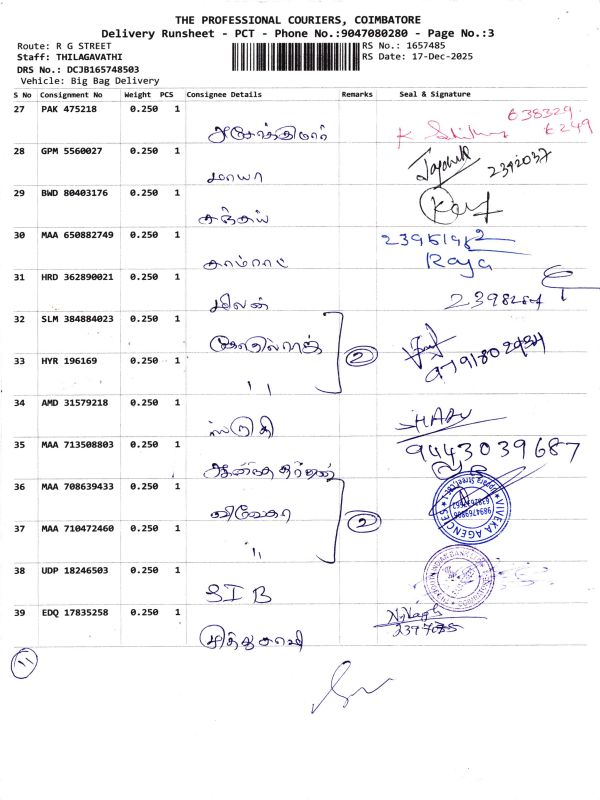 THE PROFESSIONAL COURIERS, COIMBATORE
Delivery Runsheet - PCT - Phone No.:9047080280 - Page No.:3
Route: R G STREET
RS No.: 1657485
Staff: THILAGAVATHI
RS Date: 17-Dec-2025
DRS No.: DCJB165748503
Vehicle: Big Bag Delivery
S No Consignment No Weight PCS Consignee Details Remarks Seal & Signature
27 PAK 475218 0.250 1
28 GPM 5560027 0.250 1
மாயா 2392037
29 BWD 80403176 0.250 1
சஞ்சய்
30 MAA 650882749 0.250 1
காம்ராட்
Raja
31 HRD 362890021 0.250 1
மிலன்
32 SLM 384884023 0.250 1
2
33 HYR 196169 0.250 1
" 
34 AMD 31579218 0.250 1
ஸ்ருதி
35 MAA 713508803 0.250 1
9443039687
36 MAA 708639433 0.250 1
விவேகா
VIVEKA AGENCIES
2
37 MAA 710472460 0.250 1
"
38 UDP 18246503 0.250 1
SIB
39 EDQ 17835258 0.250 1
11